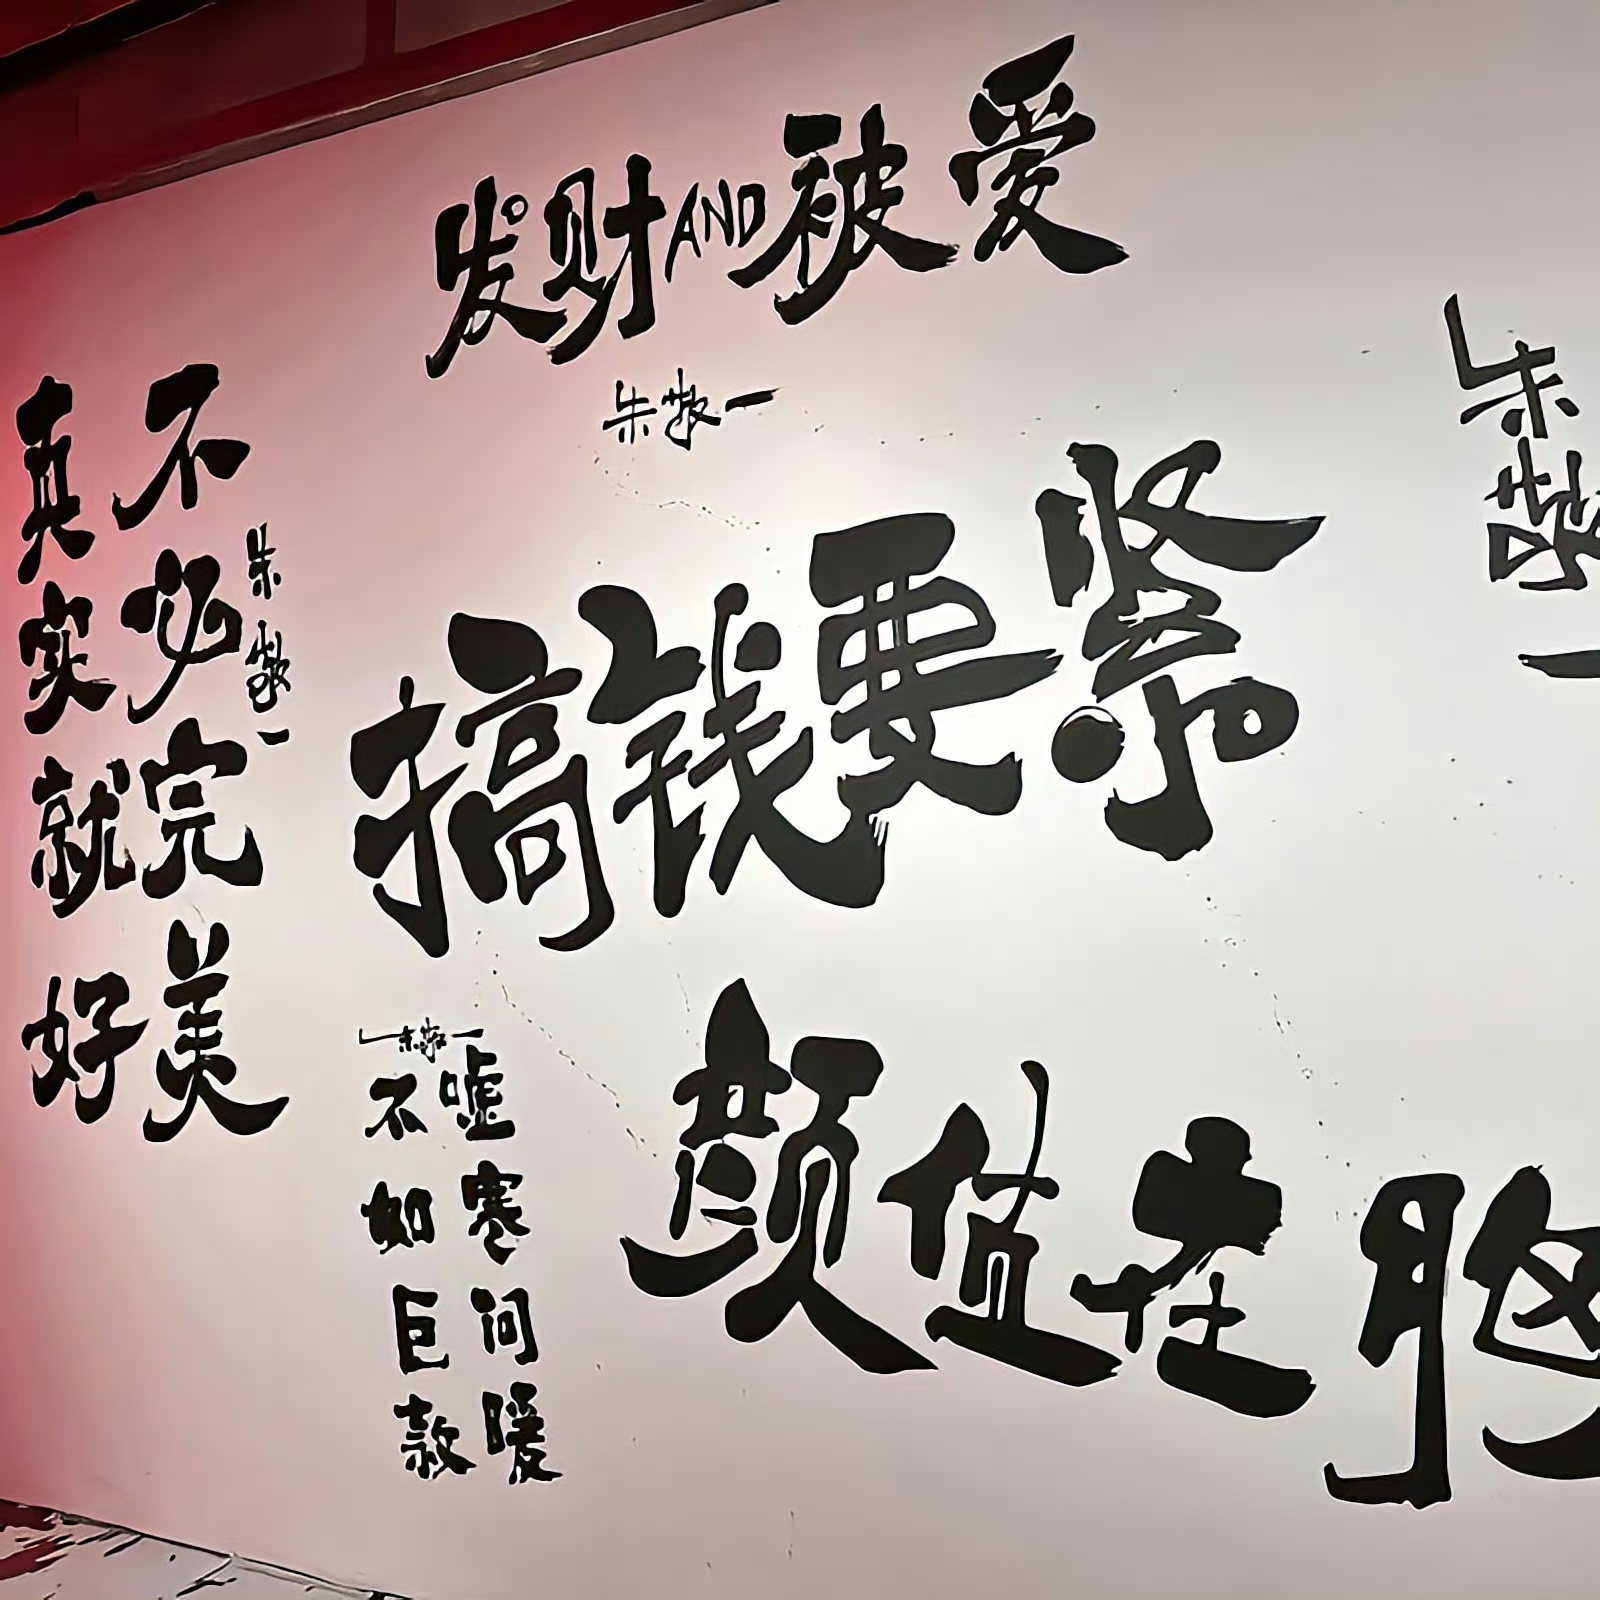 发财AND被爱
朱敬一
不必完美
真实就好
朱敬一
搞钱要紧
朱敬一
嘘寒问暖
不如巨款
一朱敬一
颜值在胸